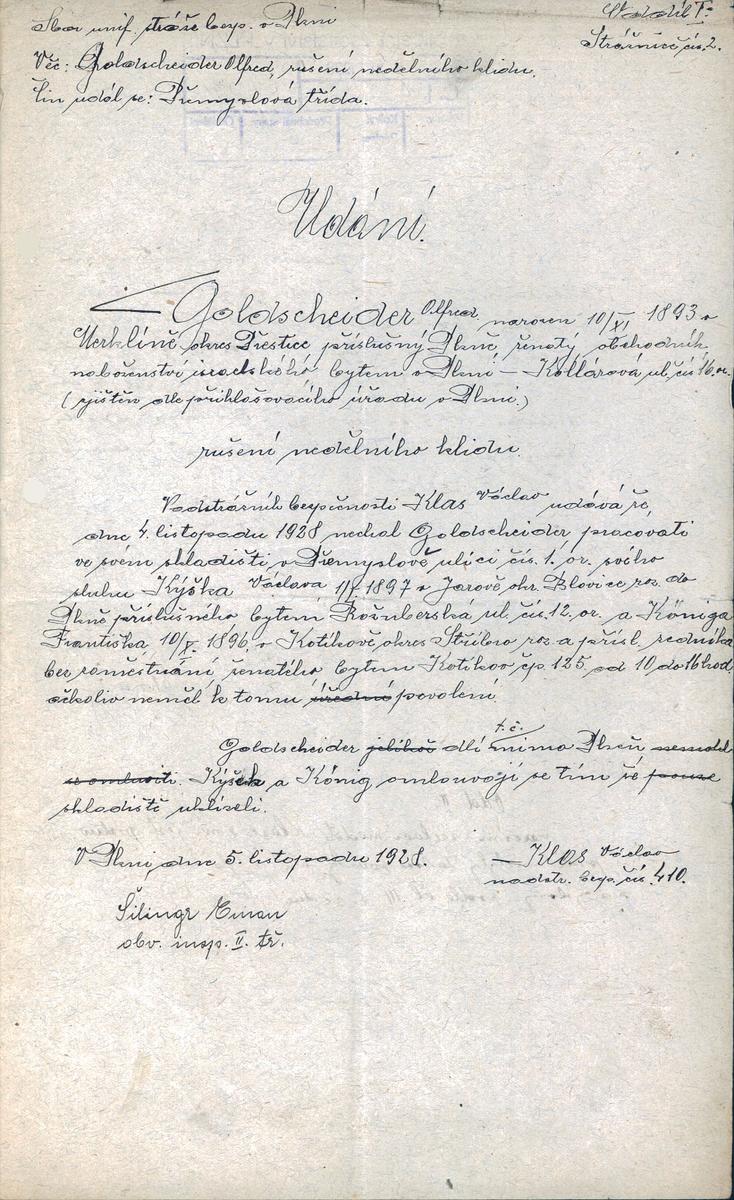 Sbor unif. stráže bezp. v Plzni
Oddíl I.
Strážnice čís. 2.
Věc: Goldscheider Alfred, rušení nedělního klidu.
Čin udál se: Přemyslová třída.
Udání.
Goldscheider Alfred, narozen 10/XI 1893 v
Merklíně okres Přestice příslušný Plzně, ženatý, obchodník
náboženství israelského bytem v Plzni – Kollárová ul. čís 16. or.
(zjištěn dle přihlašovacího úřadu v Plzni.)
rušení nedělního klidu.
Nadstrážník bezpečnosti Klas Václav udává že,
dne 4. listopadu 1928 nechal Goldscheider pracovati
ve svém skladišti v Přemyslově ulici čís. 1. or. svého
sluhu Kýška Václava 1/I 1897 v Jarově okr. Blovice roz. do
Plzně příslušného bytem Rožmberská ul. čís. 12. or. a Königa
Františka, 10/X. 1896, v Kotíkově okres Stříbro roz. a přísl. zedníka
bez zaměstnání, ženatého, bytem Kotíkov čp. 125, od 10 do 16 hod,
ačkoliv neměl k tomu úřední povolení.
Goldscheider jelikož dlí t. č. mimo Plzeň nemohl
se omluviti. Kýšek a König omlouvají se tím že pouze
skladiště uklízeli.
V Plzni, dne 5. listopadu 1928.
Klas Václav
nadstr. bezp. čís. 410.
Šilingr Eman
obv. insp. II. tř.